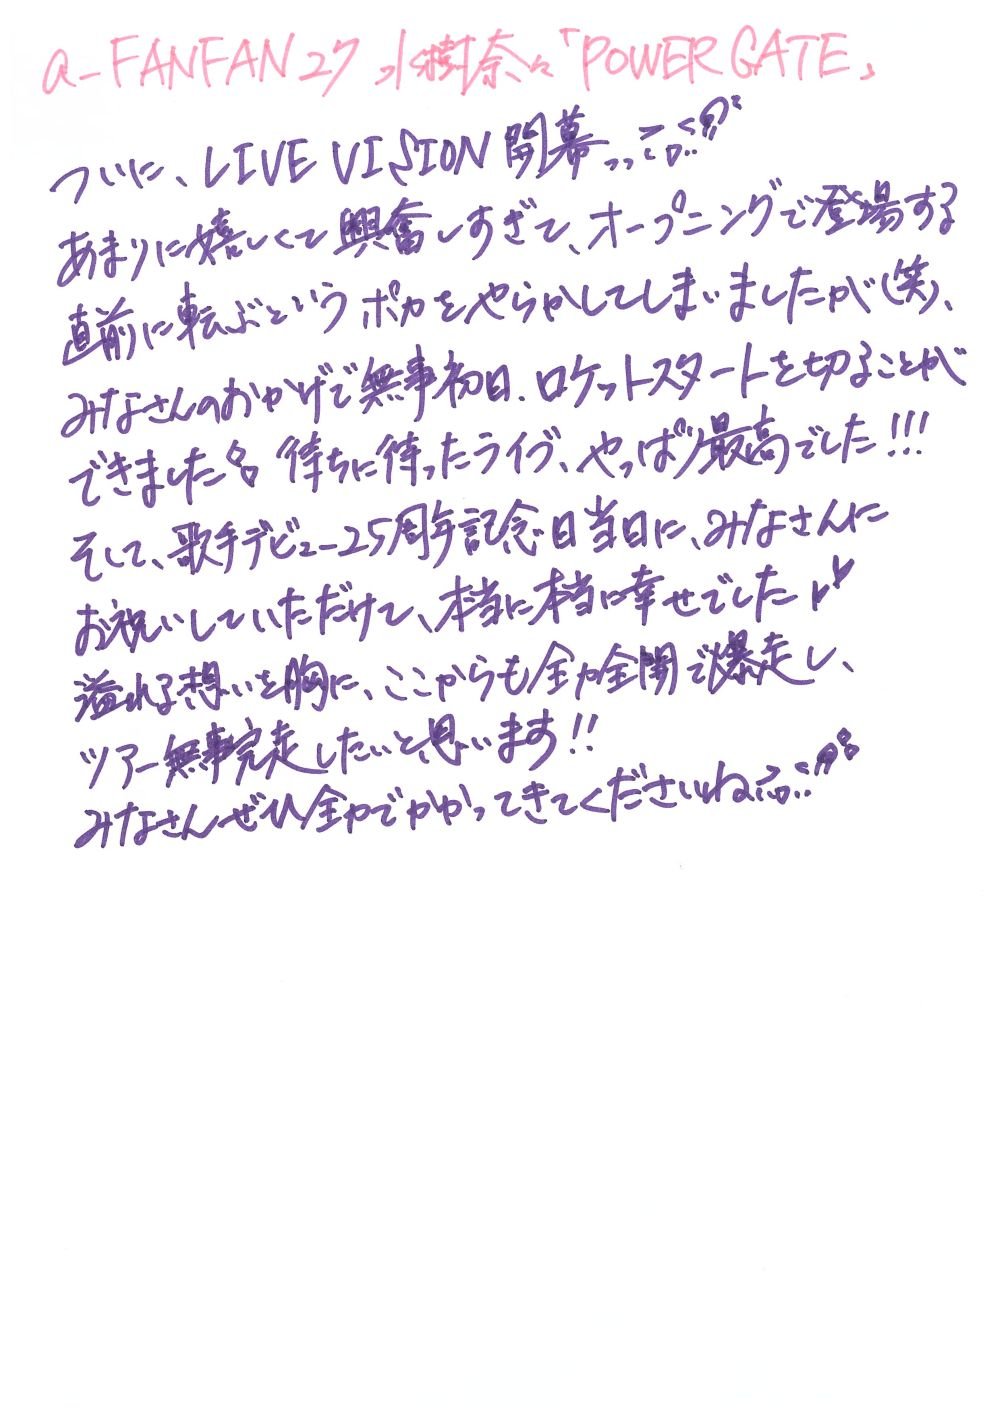 a-FANFAN27 水樹奈々「POWER GATE」
ついに、LIVE VISION 開幕っっ
あまりに嬉しくて興奮しすぎて、オープニングで登場する
直前に転ぶというポカをやらかしてしまいましたが(笑)、
みなさんのおかげで無事初日、ロケットスタートを切ることが
できました 待ちに待ったライブ、やっぱり最高でした!!!
そして、歌手デビュー25周年記念日当日に、みなさんに
お祝いしていただけて、本当に本当に幸せでした♥
溢れる想いを胸に、ここからも全力全開で爆走し、
ツアー無事完走したいと思います!!
みなさんぜひ全力でかかってきてくださいね